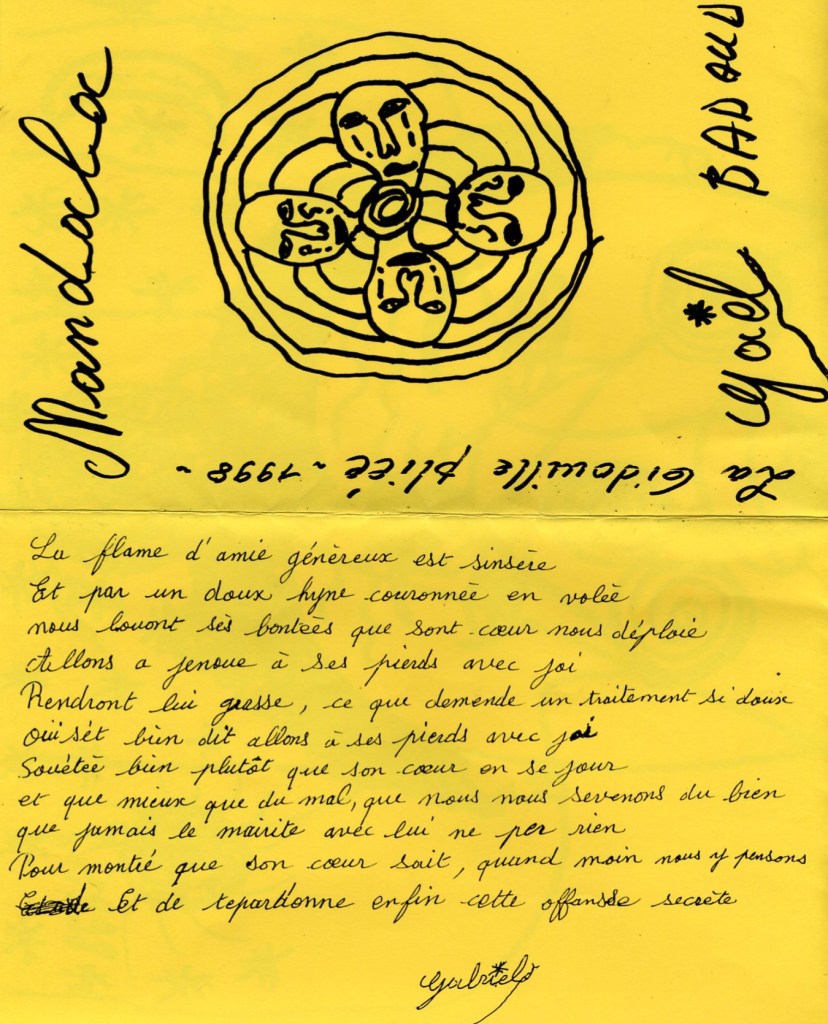 Mandala
Gaël BADAUD
La Gidouille pliée ~ 1998 ~
La flame d'amie génèreux est sinsère
Et par un doux hyne couronnée en volée
nous louont sès bontèes que sont cœur nous déploie
Allons a jenoue à ses pierds avec joi
Rendront lui grasse, ce que demende un traitement si doux
Oui sét bien dit allons à ses pierds avec joi
Souétée bien plutôt que son cœur en se jour
et que mieux que du mal, que nous nous sevenons du bien
que jamais le mairite avec lui ne per rien
Pour montié que son cœur sait, quand moin nous y pensons
Et de tepardionne enfin cette offansée secrète
Gabriel